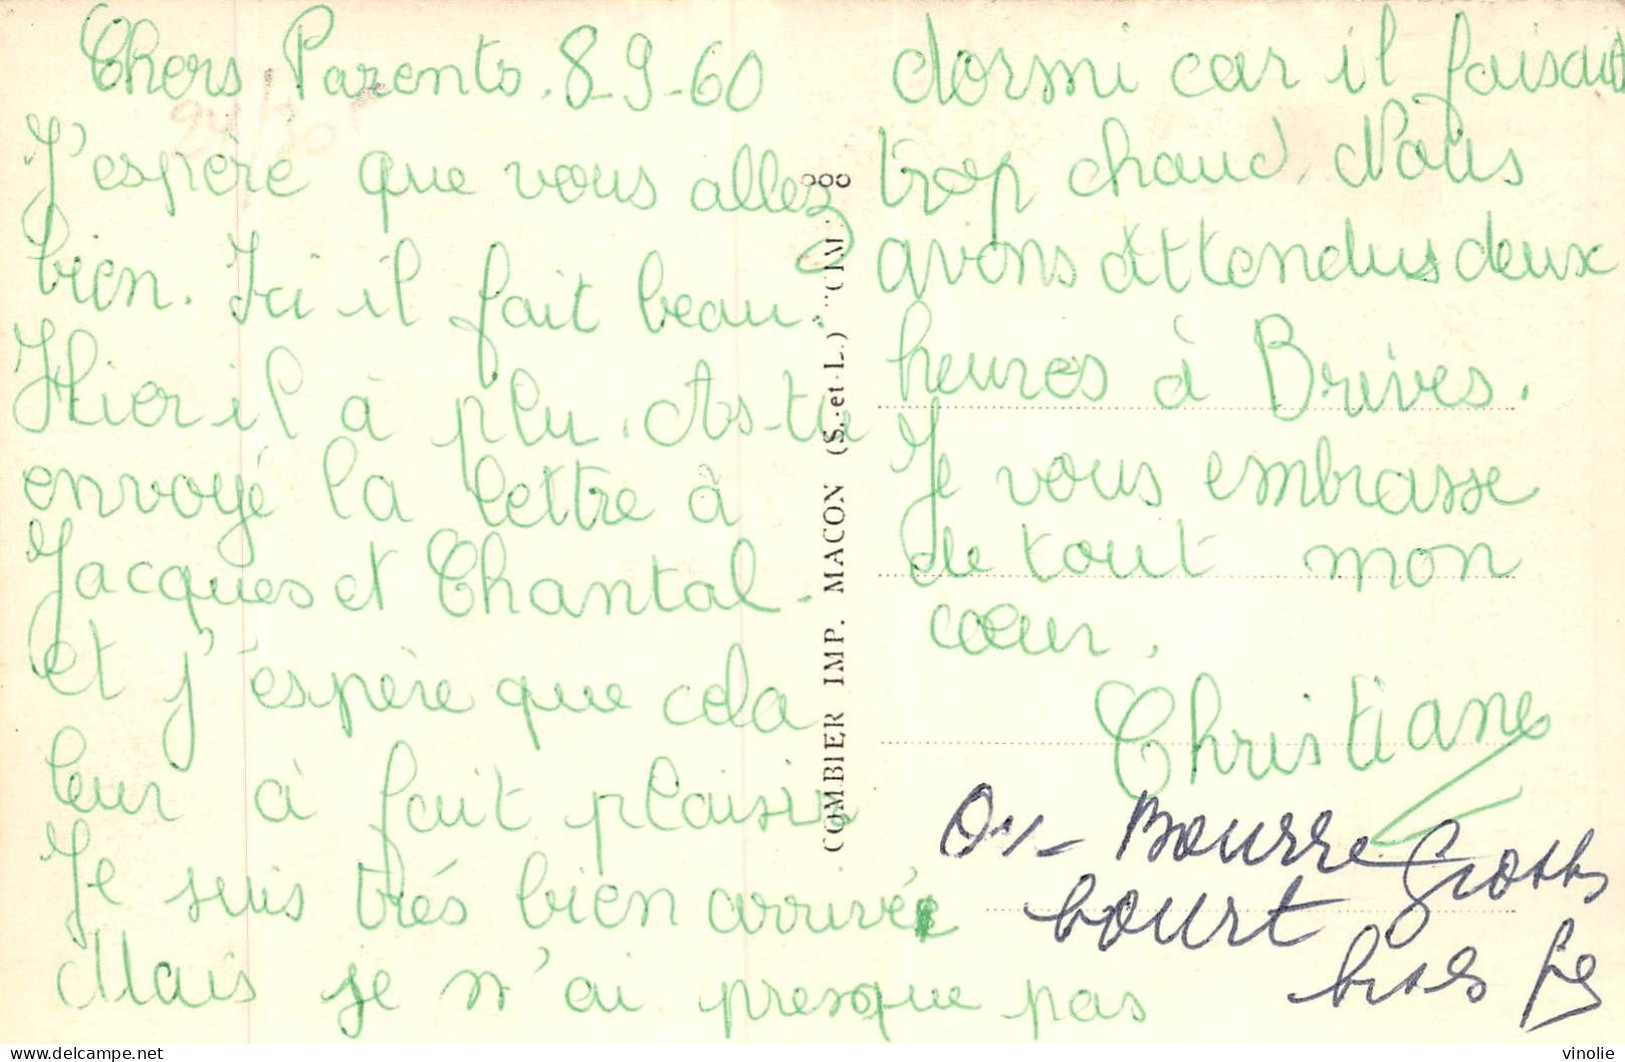 Chers Parents. 8-9-60
J'espère que vous allez
bien. Ici il fait beau.
Hier il à plu. As-tu
envoyé la lettre à
Jacques et Chantal.
et j'éspère que cela
leur à fait plaisir
Je suis très bien arrivée
Mais je n'ai presque pas
dormi car il faisait
trop chaud. Nous
avons attendus deux
heures à Brives.
Je vous embrasse
de tout mon
cœur.
Christiane
Bourre
court
COMBIER IMP. MACON (S.-et-L.) "CIM"
delcampe.net
vinolie